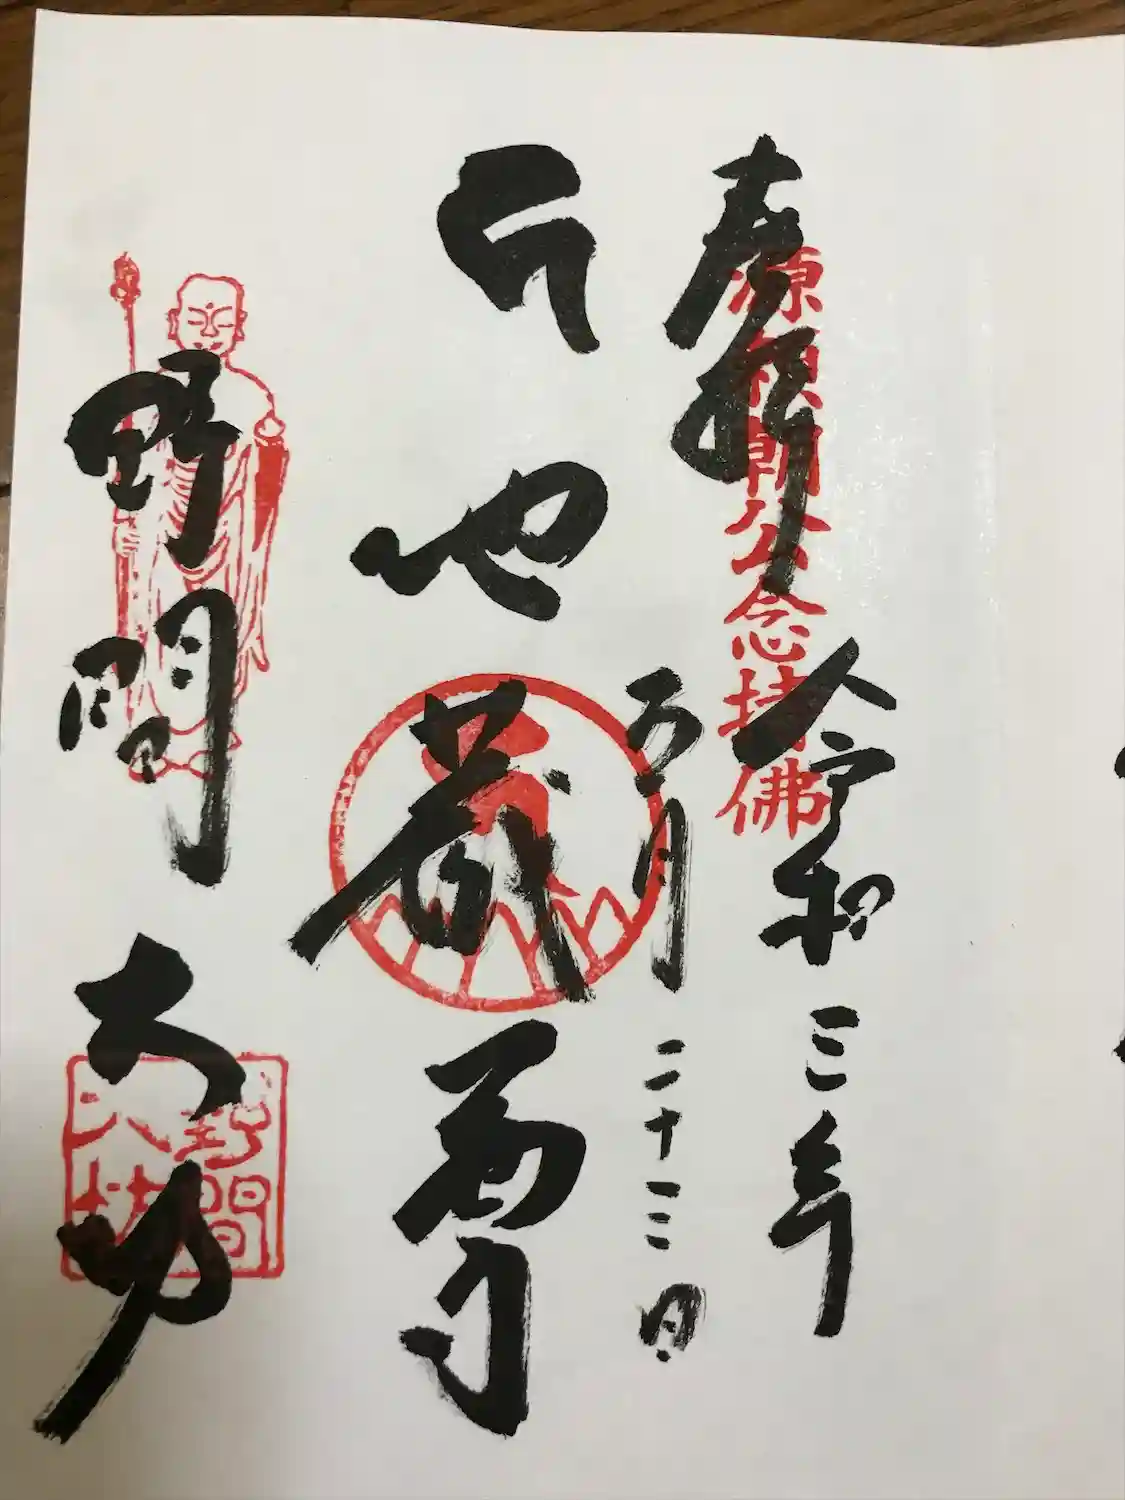 奉拝
源頼朝公念持佛
令和三年
五月二十三日
地蔵尊
野間大坊
野間
大坊